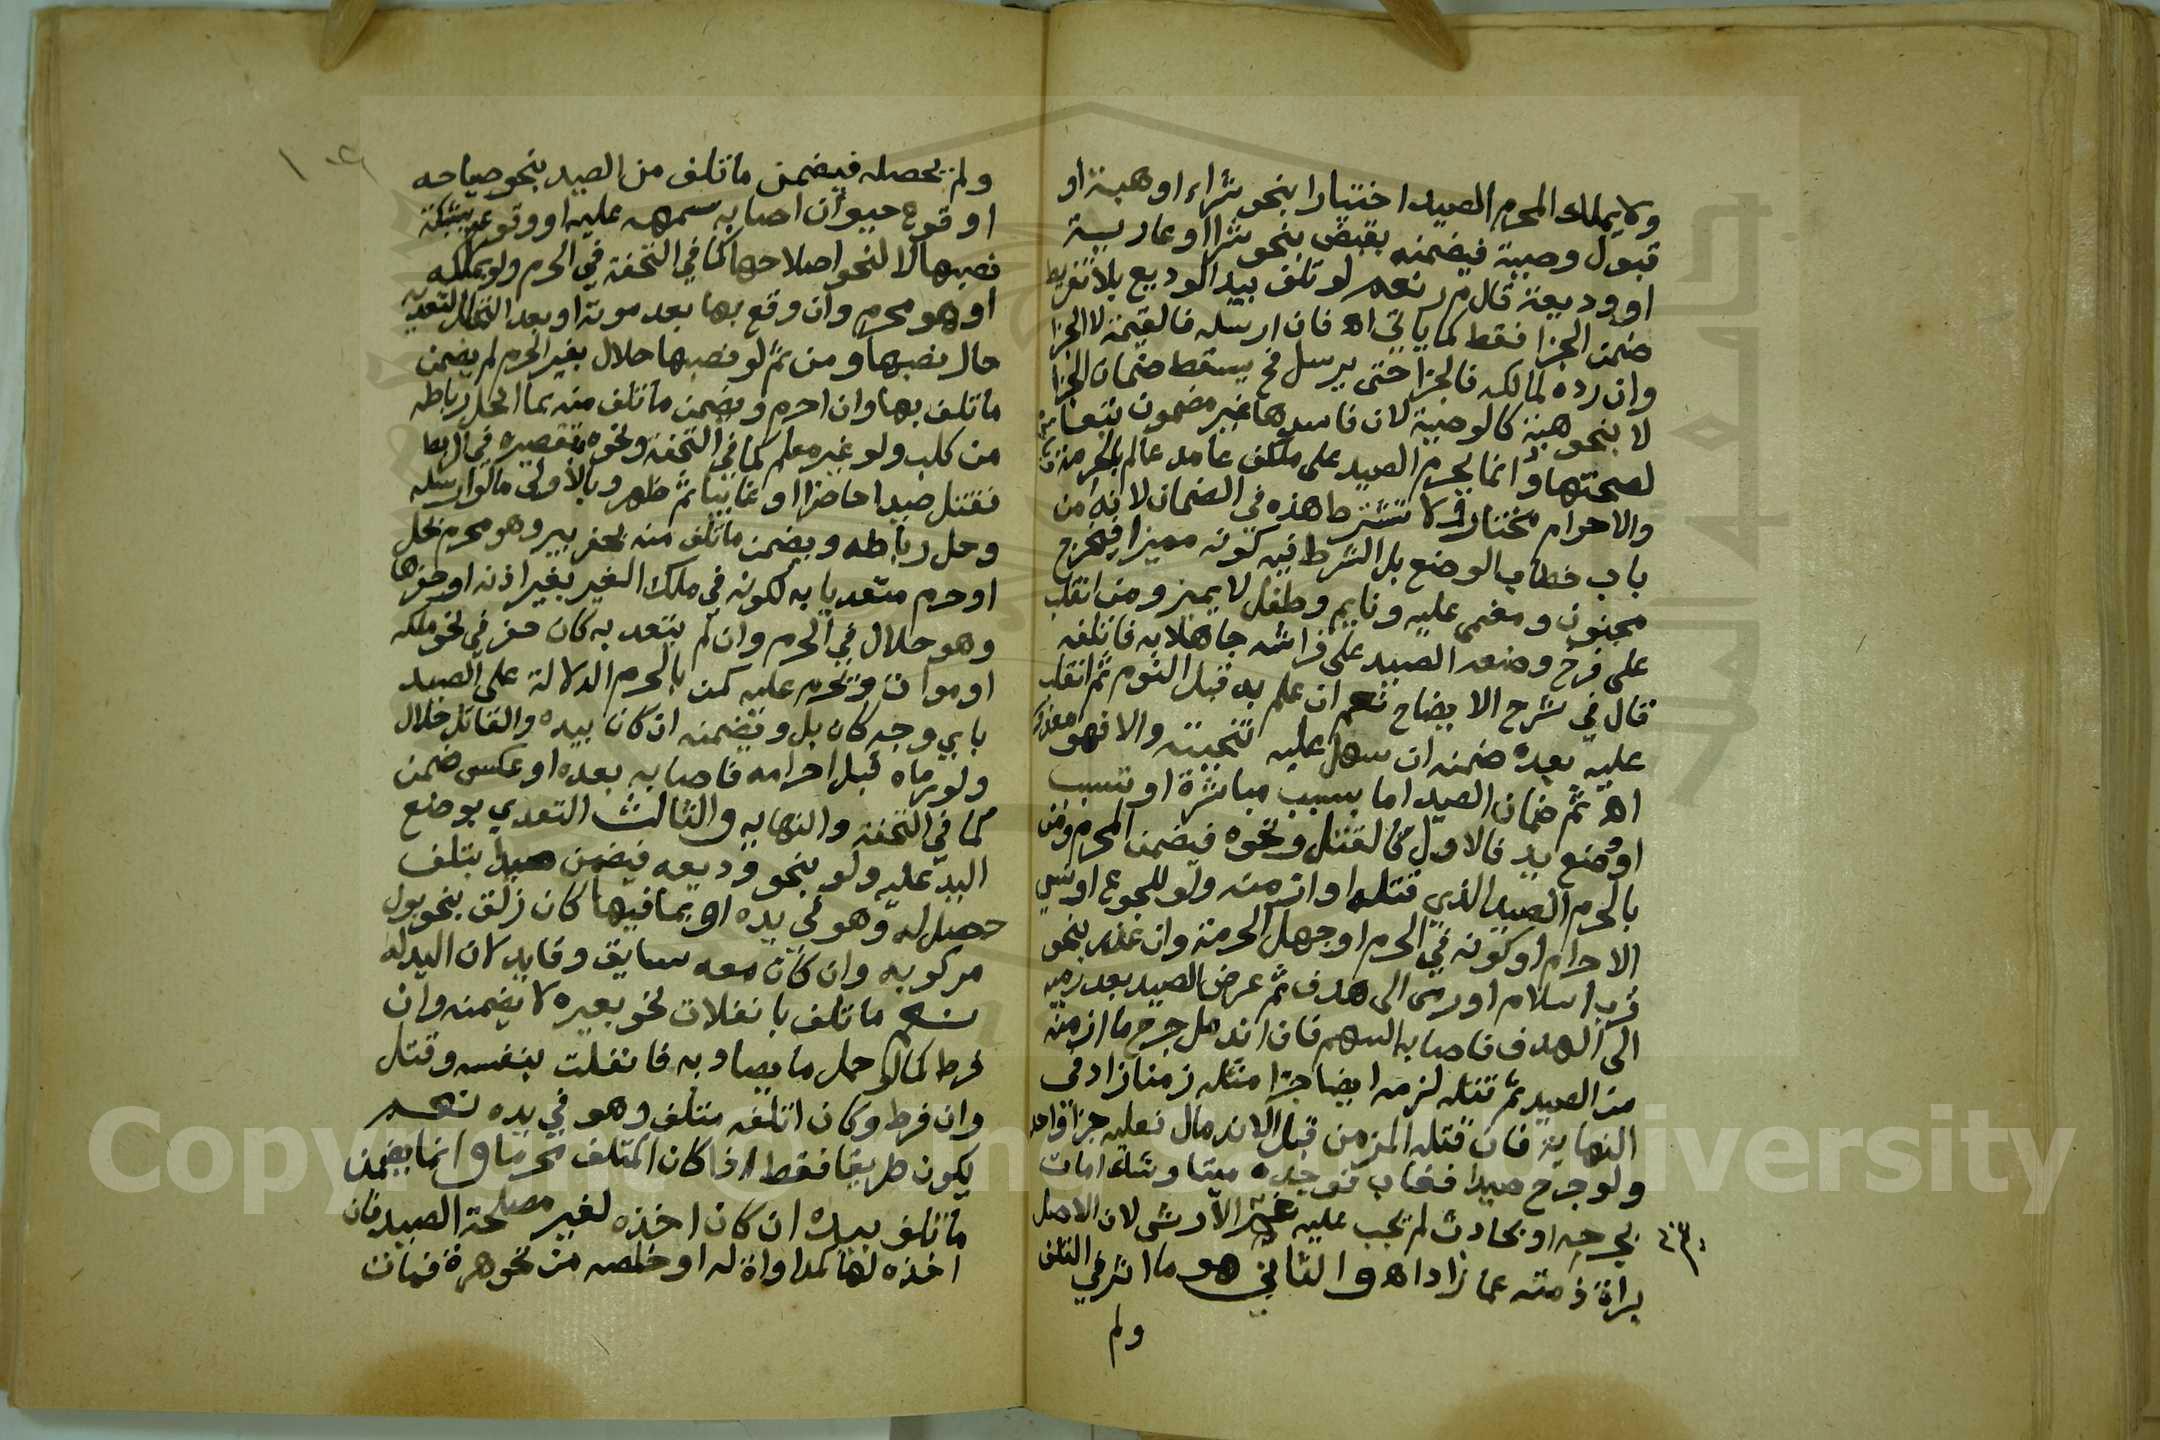 ولا يملك المحرم الصيد اختيارا بنحو شراء او هبة او
قبول وصية فيضمنه بقبض بنحو شرا او عارية
او وديعة قال م ر نعم لو تلف بيد الوديع بلا تفريط
ضمن الجزا فقط كما ياتي اه فان ارسله فالقيمة لا الجزا
وان رده لمالكه فالجزا حتى يرسل فح يسقط ضمان الجزا
لا بنحو هبة كالوصية لان فاسدها غير مضمون تبعا
لصحتها وانما يحرم الصيد على مكلف عامد عالم بالحرمة
والاحرام مختار ولا تشترط هذه في الضمان لانه من
باب خطاب الوضع بل الشرط فيه كونه مميزا فيخرج
مجنون ومغمى عليه ونايم وطفل لا يميز ومن انقلب
على فرخ وضعه الصيد على فراشه جاهلا به فاتلفه
قال في شرح الايضاح نعم ان علم به قبل النوم ثم انقلب
عليه بعده ضمنه ان سهل عليه تنحيته والا فهو معذور
اه ثم ضمان الصيد اما بسبب مباشرة او تسبب
او وضع يد فالاول كالقتل ونحوه فيضمن المحرم ومن
بالحرم الصيد الذي قتله او ازمنه ولو للجوع او نسي
الاحرام او كونه في الحرم او جهل الحرمة وان عذر بنحو
قرب اسلام او رمى الى هدف ثم عرض الصيد بعد رميه
الى الهدف فاصابه السهم فان اندمل جرح ما ازمنه
من الصيد ثم قتله لزمه ايضا جزا مثله زمنا زاد في
النهاية فان قتله المزمن قبل الاندمال فعليه جزا واحد
ولو جرح صيدا فغاب فوجده ميتا وشك امات
بجرحه او بحادث لم يجب عليه غير الارش لان الاصل
براة ذمته عما زاد اه والثاني هو ما اثر في التلف
ولم
ولم يحصله فيضمن ما تلف من الصيد بنحو صياحه
او وقوع حيوان اصابه سهمه عليه او وقوعه بشبكة
نصبها لا لنحو اصلاحها كما في التحفة في الحرم ولو بملكه
او هو محرم وان وقع بها بعد موته او بعد التحلل لتعديه
حال نصبها ومن ثم لو نصبها حلال بغير الحرم لم يضمن
ما تلف بها وان احرم ويضمن ما تلف منه بما انحل رباطه
من كلب ولو غير معلم كما في التحفة ونحوه بتقصيره في الربط
فقتل صيدا حاضرا او غايبا ثم ظهر وبالاولى ما لو ارسله
وحل رباطه ويضمن ما تلف منه بحفر بير وهو محرم بحل
او حرم متعديا به لكونه في ملك الغير بغير اذنه او حفرها
وهو حلال في الحرم وان لم يتعد به كان حفر في نحو ملكه
او موات ويحرم عليه كمن بالحرم الدلالة على الصيد
باي وجه كان بل ويضمنه ان كان بيده والقاتل حلال
ولو رماه قبل احرامه فاصابه بعده او عكس ضمن
كما في التحفة والنهايه والثالث التعدي بوضع
اليد عليه ولو بنحو وديعه فيضمن صيدا بتلف
حصل له وهو في يده او بما فيها كان زلق بنحو بول
مركوبه وان كان معه سايق وقايد لان اليد له
نعم ما تلف بانفلات نحو بعيره لا يضمنه وان
فرط كما لو حمل ما يصاد به فانفلت بنفسه وقتل
وان فرط وكان اتلفه متلف وهو في يده نعم
يكون طريقا فقط اذا كان المتلف محرما وانما يضمن
ما تلف بيده ان كان اخذه لغير مصلحة الصيد فان
اخذه لها كمداواة له او خلصه من نحو هرة فمات